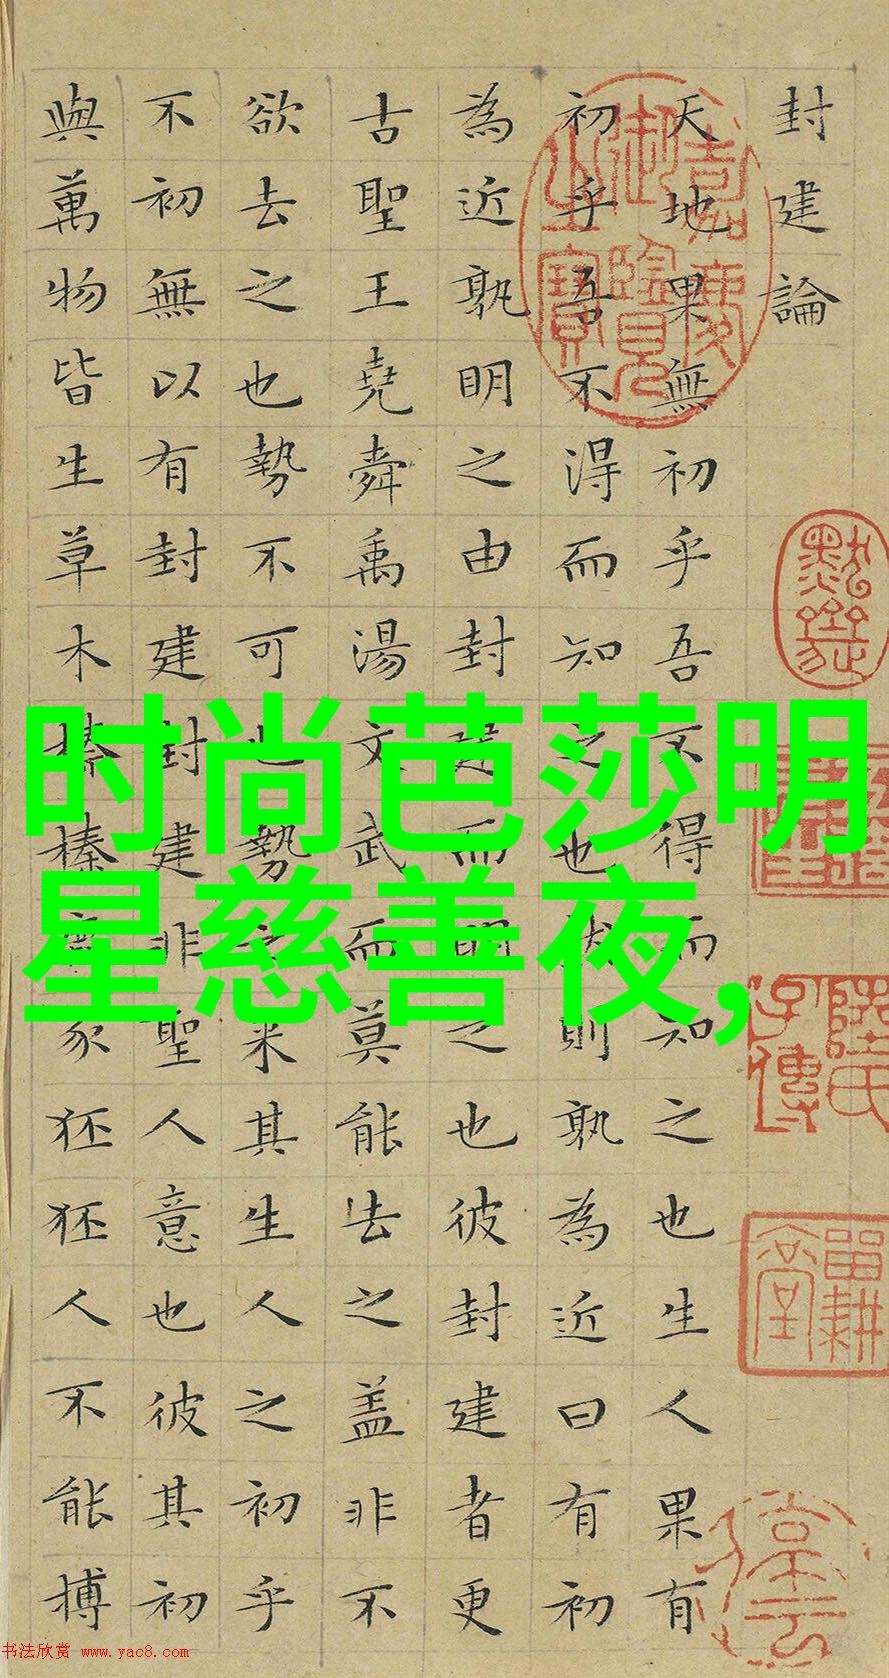 封建論
天地果無初乎吾不得而知之也生人果有
初乎吾不得而知之也然則孰為近曰有初
為近孰明之由封建而明之也彼封建者更
古聖王堯舜禹湯文武而莫能去之盖非不
欲去之也勢不可也勢之来其生人之初乎
不初無以有封建封建非聖人意也彼其初
與萬物皆生草木榛榛鹿豕狉狉人不能搏
嘉慶御覽之寶
陸氏子傳
留耕堂
时尚芭莎明
星慈善夜,
书法欣赏 www.yac8.com